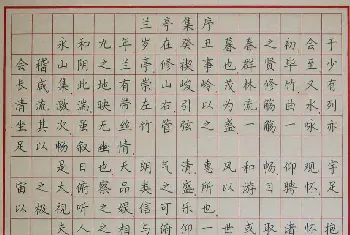 兰亭集序
永和九年岁在癸丑暮春之初会于
会稽山阴之兰亭修禊事也群贤毕至少
长咸集此地有崇山峻岭茂林修竹又有
清流激湍映带左右引以为流觞曲水列
坐其次虽无丝竹管弦之盛一觞一咏亦
足以畅叙幽情.
是日也,天朗气清惠风和畅仰观宇
宙之大俯察品类之盛所以游目骋怀,足
以极视听之娱信可乐也.
夫人之相与俯仰一世或取诸怀抱